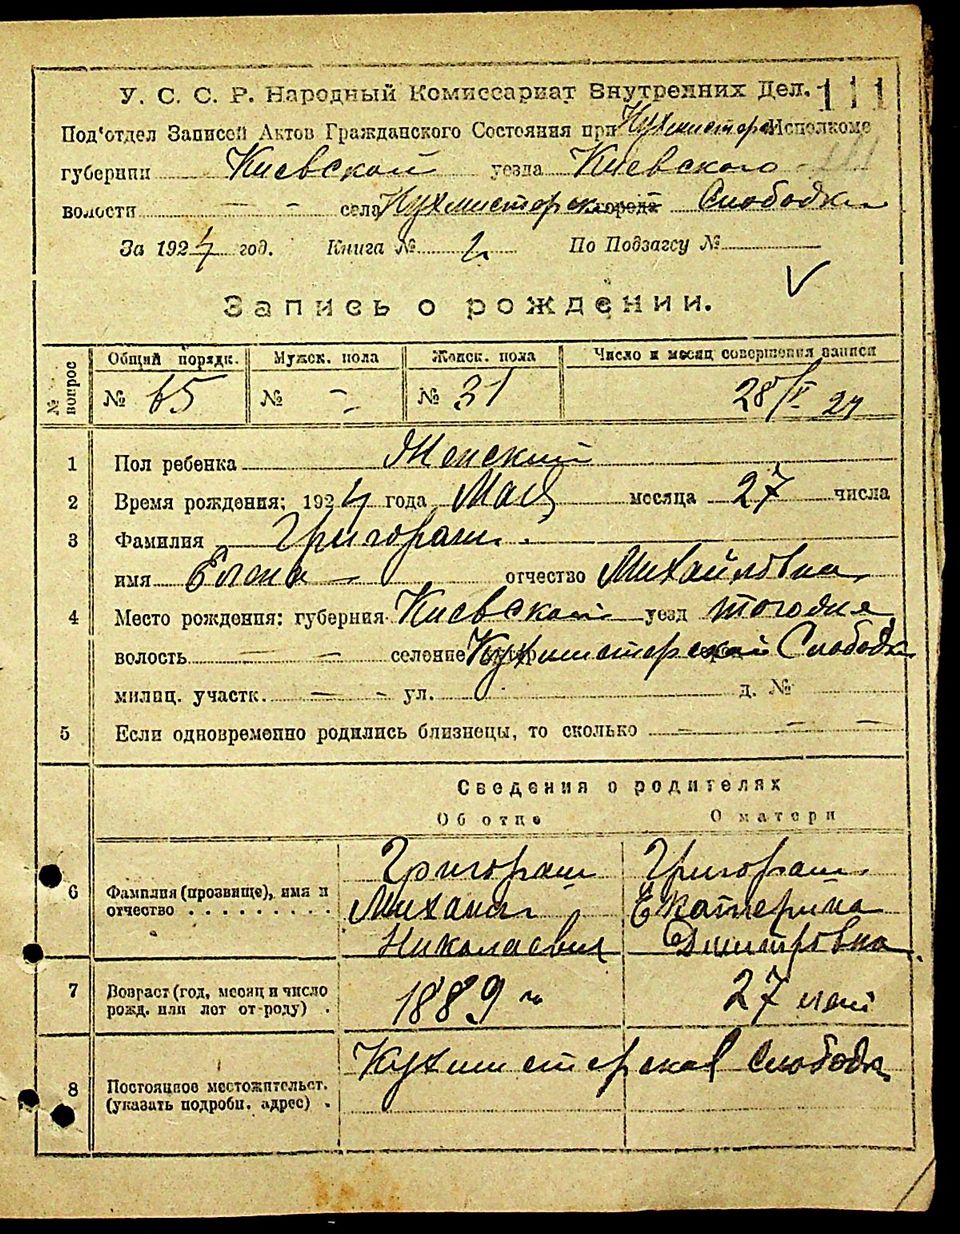 111
У. С. С. Р. Народный Комиссариат Внутренних Дел.
Под'отдел Записей Актов Гражданского Состояния при Кухмистерс Исполкоме
губернии Киевской уезда Киевского
волости — — села Кухмистерск города Слободки
За 1924 год. Книга № 2 По Подзагсу №
Запись о рождении.
№ вопрос Общий порядк. Мужск. пола Женск. пола Число и месяц совершения записи
№ 65 № — № 31 28/V 24
1 Пол ребенка Женский
2 Время рождения: 1924 года Мая месяца 27 числа
3 Фамилия Григораш
имя Елена отчество Михайловна
4 Место рождения: губерния Киевской уезд того для
волость — — селение Кухмистерской Слободк
милиц. участк. — — ул. д. №
5 Если одновременно родились близнецы, то сколько — — —
Сведения о родителях
Об отце О матери
6 Фамилия (прозвище), имя и отчество
Григораш Григораш
Михаил Екатерина
Николаевич Дмитровна
7 Возраст (год, месяц и число рожд. или лет от-роду)
1889 г. 27 лет
8 Постоянное местожительст. (указать подробн. адрес)
Кухмистерская Слободк